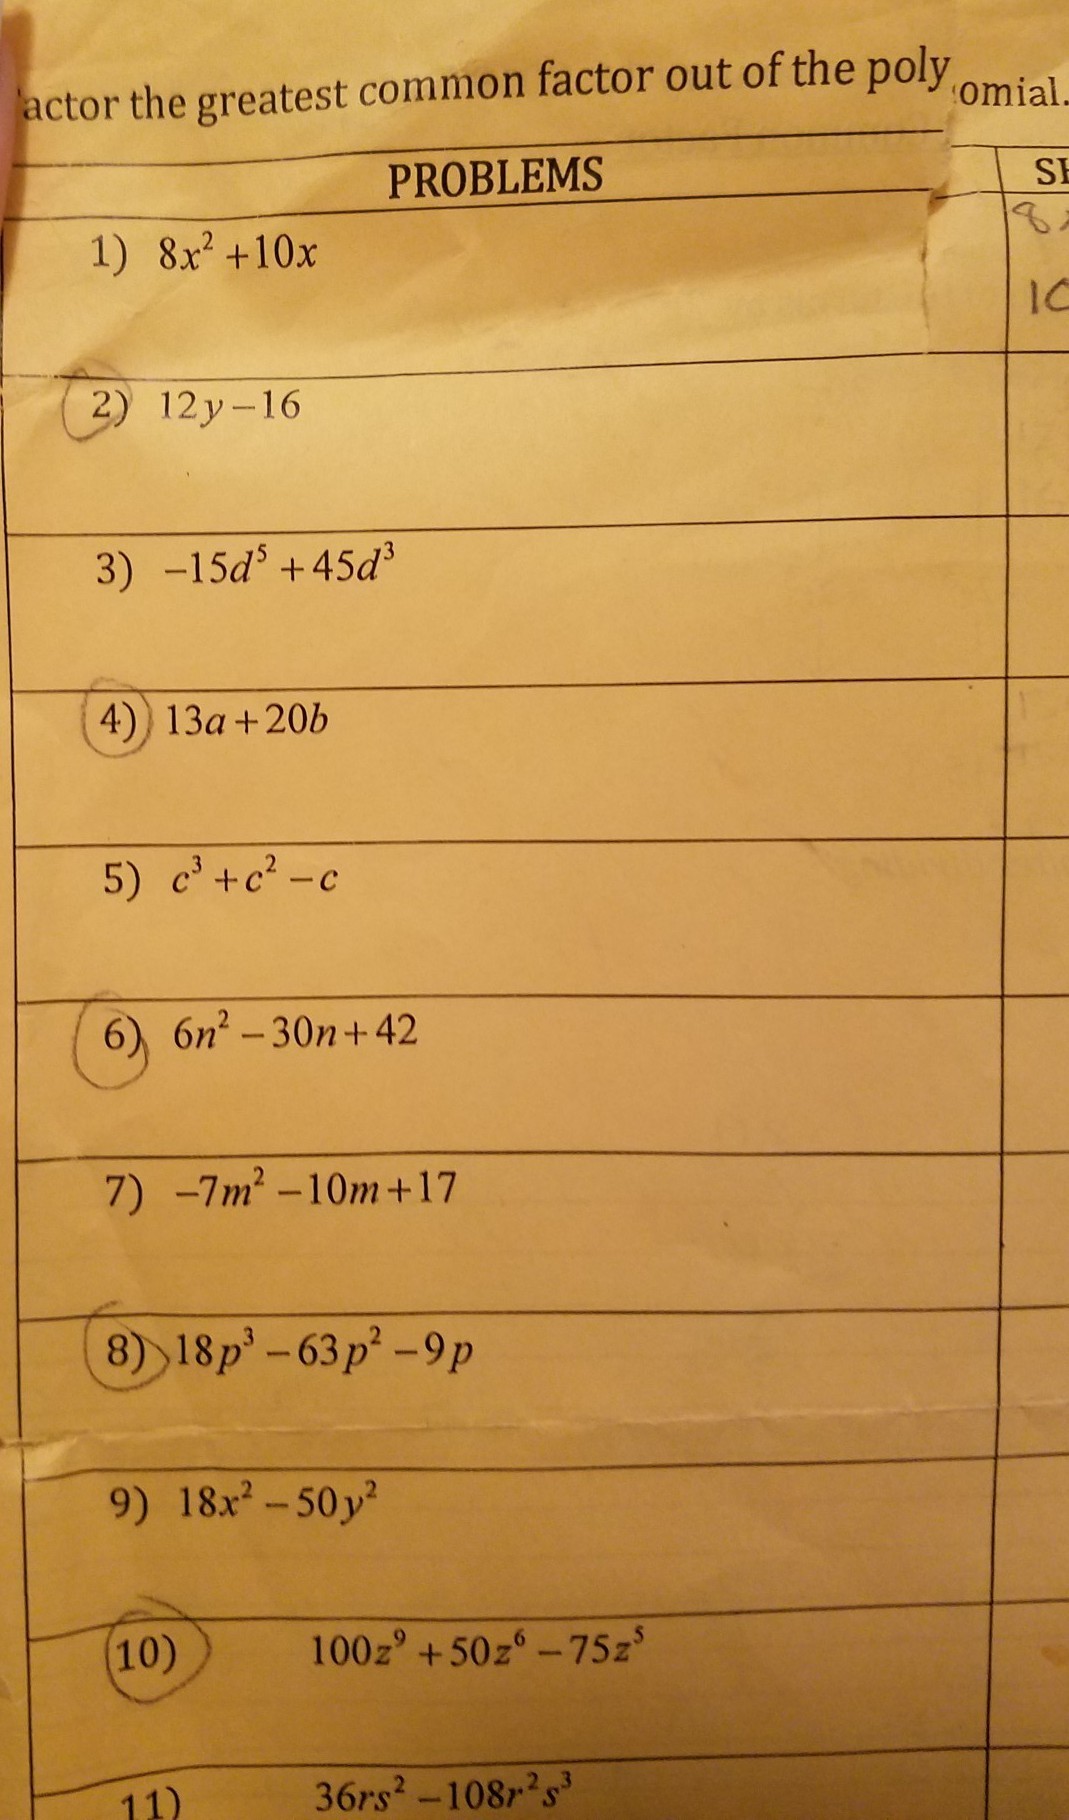 actor the greatest common factor out of the poly omial.
PROBLEMS
1) 8x² +10x
10
2) 12y–16
3) –15d⁵ +45d³
4) 13a+20b
5) c³ +c² –c
6) 6n² –30n+42
7) –7m² –10m+17
8) 18p³ –63p² –9p
9) 18x² –50y²
10) 100z⁹ +50z⁶ –75z⁵
11) 36rs² –108r²s³